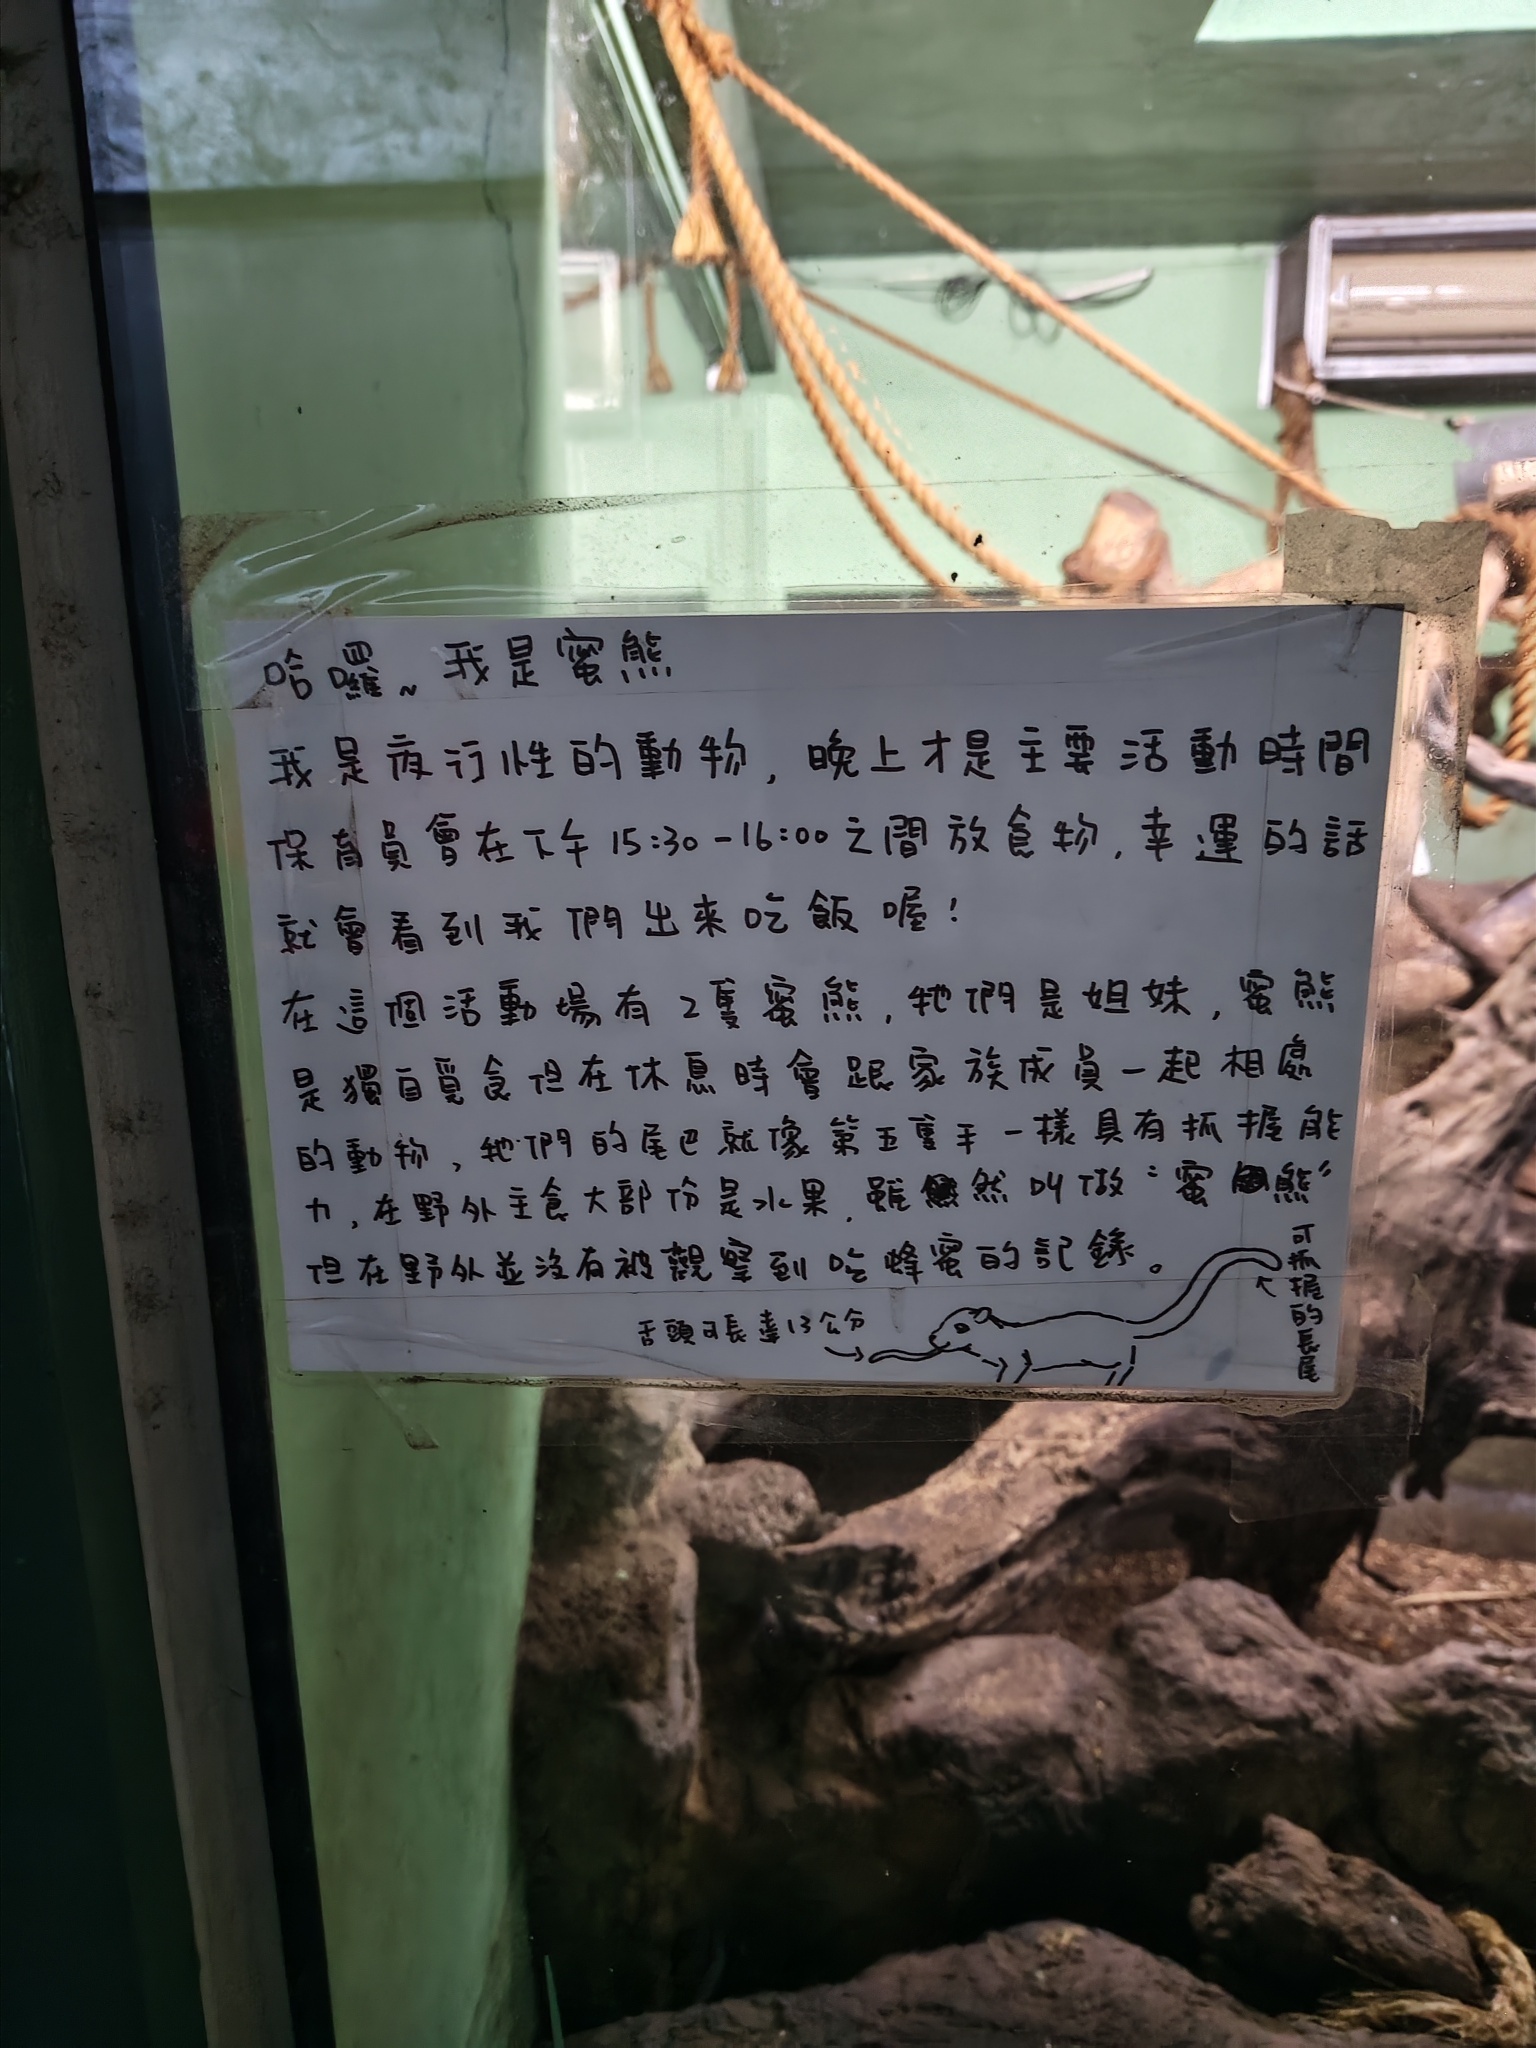 哈囉~ 我是蜜熊
我是夜行性的動物，晚上才是主要活動時間
保育員會在下午15:30-16:00之間放食物，幸運的話
就會看到我們出來吃飯喔！
在這個活動場有2隻蜜熊，牠們是姐妹，蜜熊
是獨自覓食但在休息時會跟家族成員一起相處
的動物，牠們的尾巴就像第五隻手一樣具有抓握能
力，在野外主食大部份是水果，雖然叫做“蜜熊”
但在野外並沒有被觀察到吃蜂蜜的記錄。
舌頭可長達13公分
可抓握的長尾